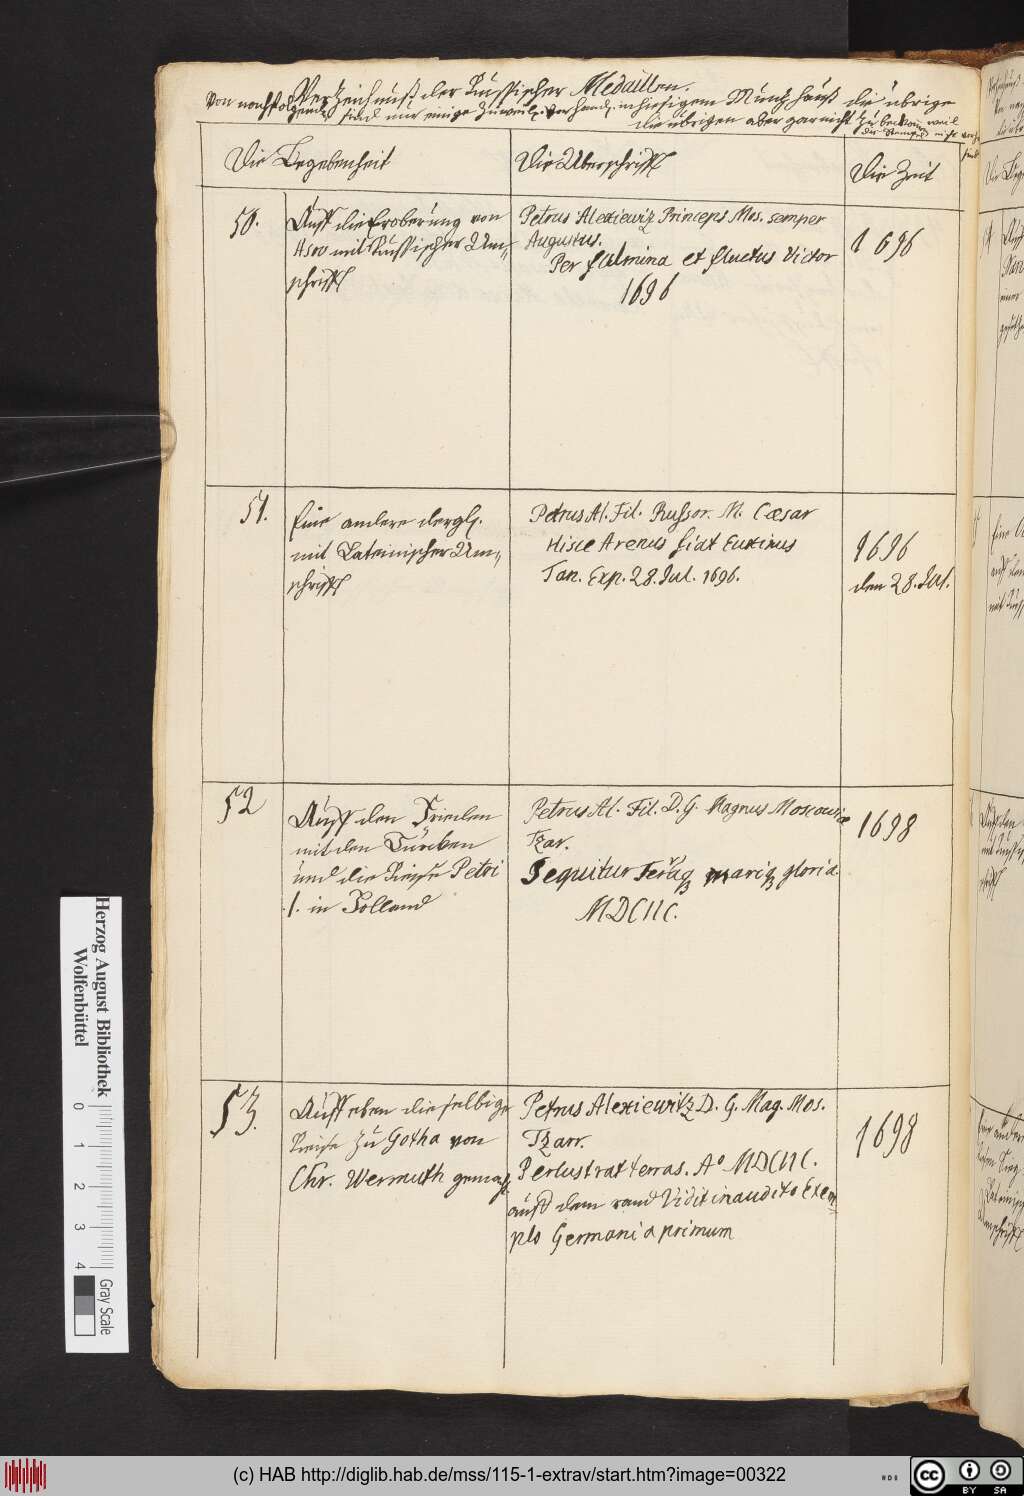 Verzeichnuß der Russischer Medaillen.
Von nachfolgende sind nur einige zuweil. vorhand. in hiesigem Müntzhauß die übrige
die übrigen aber gar nicht zu bekom̄en weil
die Stempel nicht vorh.
Die Begebenheit
Die Überschrifft
Die Zeit
50.
Auff die Eroberung von
Asow mit Russischer Um=
schrifft
Petrus Alexiewiz Princeps Mos. semper
Augustus.
Per fulmina et fluctus victor
1696
1696
51.
Eine andere dergl.
mit Lateinischer Um=
schrifft
Petrus Al. Fil. Russor. M. Cæsar
Hisce Arenus fiat Euxinus
Tan. Exp. 28. Jul. 1696.
1696
den 28. Jul.
52
Auff den Frieden
mit den Türcken
und die Reise Petri
.1. in Holland
Petrus Al. Fil. D. G. Magnus Moscoviæ
Tzar.
Sequitur Terraq mariq gloria
MDCIIC.
1698
53.
Auff eben dieselbige
Reise zu Gotha von
Chr. Wermuth gemach.
Petrus Alexiewitz D. G. Mag. Mos.
Tzarr.
Perlustrat terras. A° MDCIIC.
auß dem rand Vidit inaudito Exem=
plo Germania primum
1698
Herzog August Bibliothek
Wolfenbüttel
0 1 2 3 4
Gray Scale
(c) HAB http://diglib.hab.de/mss/115-1-extrav/start.htm?image=00322
cc BY SA